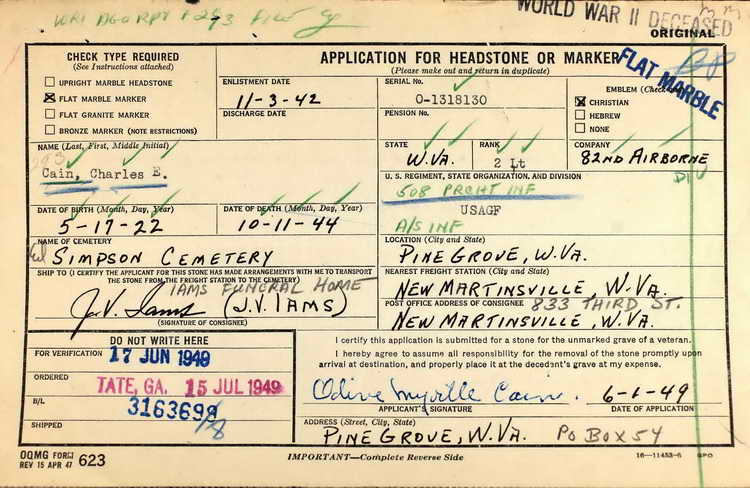 WORLD WAR II DECEASED
ORIGINAL
CHECK TYPE REQUIRED
(See Instructions attached)
UPRIGHT MARBLE HEADSTONE
FLAT MARBLE MARKER
FLAT GRANITE MARKER
BRONZE MARKER (NOTE RESTRICTIONS)
APPLICATION FOR HEADSTONE OR MARKER
(Please make out and return in duplicate)
FLAT MARBLE
ENLISTMENT DATE
11-3-42
DISCHARGE DATE
SERIAL No.
O-1318130
PENSION No.
EMBLEM (Check one)
CHRISTIAN
HEBREW
NONE
NAME (Last, First, Middle Initial)
Cain, Charles E.
STATE
W.VA.
RANK
2 Lt
COMPANY
82ND AIRBORNE
DIV
U. S. REGIMENT, STATE ORGANIZATION, AND DIVISION
508 PRCHT INF
USAGF
A/S INF
DATE OF BIRTH (Month, Day, Year)
5-17-22
DATE OF DEATH (Month, Day, Year)
10-11-44
NAME OF CEMETERY
SIMPSON CEMETERY
LOCATION (City and State)
PINE GROVE, W.VA.
SHIP TO (I CERTIFY THE APPLICANT FOR THIS STONE HAS MADE ARRANGEMENTS WITH ME TO TRANSPORT
THE STONE FROM THE FREIGHT STATION TO THE CEMETERY)
IAMS FUNERAL HOME
J.V. Iams (J.V. IAMS)
(SIGNATURE OF CONSIGNEE)
NEAREST FREIGHT STATION (City and State)
NEW MARTINSVILLE, W.VA.
POST OFFICE ADDRESS OF CONSIGNEE 833 THIRD ST.
NEW MARTINSVILLE, W.VA.
DO NOT WRITE HERE
FOR VERIFICATION
17 JUN 1949
ORDERED
TATE, GA. 15 JUL 1949
B/L
3163699
SHIPPED
I certify this application is submitted for a stone for the unmarked grave of a veteran.
I hereby agree to assume all responsibility for the removal of the stone promptly upon
arrival at destination, and properly place it at the decedent's grave at my expense.
Cain. 6-1-49
APPLICANT'S SIGNATURE
DATE OF APPLICATION
ADDRESS (Street, City, State)
PINE GROVE, W.VA. PO BOX 54
OQMG FORM
REV 15 APR 47 623
IMPORTANT—Complete Reverse Side
16—11453-6 GPO